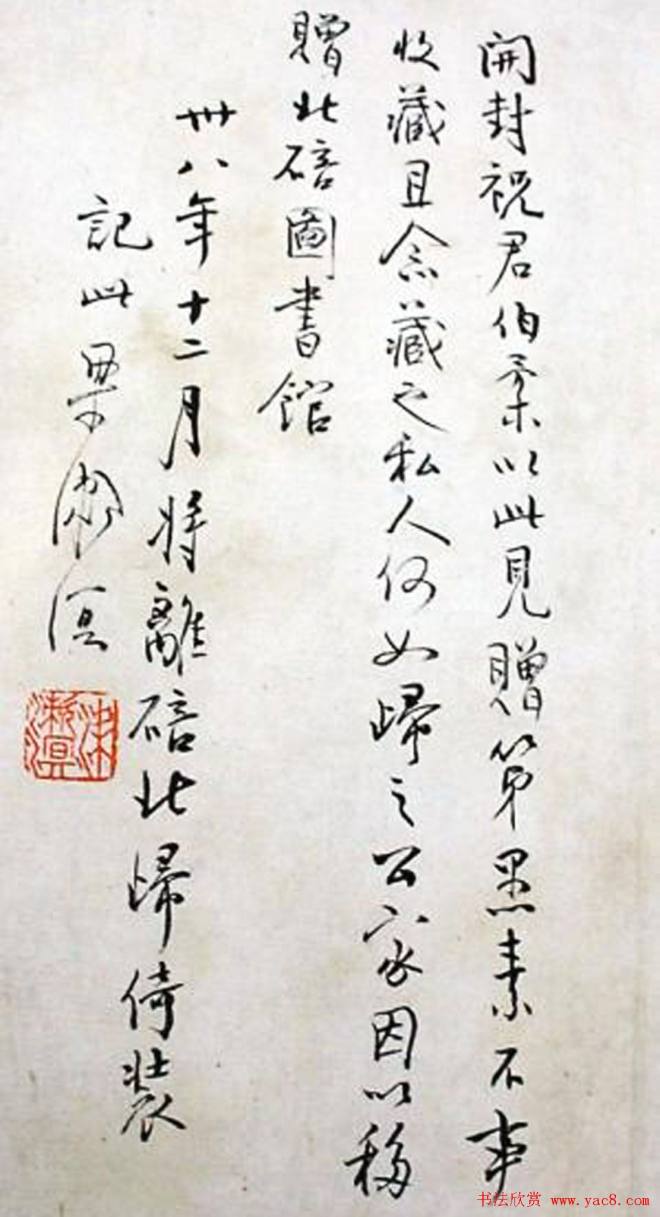 開封祝君伯柔以此見贈第愚素不事
收藏且念藏之私人何如歸之公家因以移
贈北碚圖書館
卅八年十二月將離碚北歸倚裝
記此梁漱溟
梁漱溟
书法欣赏 www.yac8.com